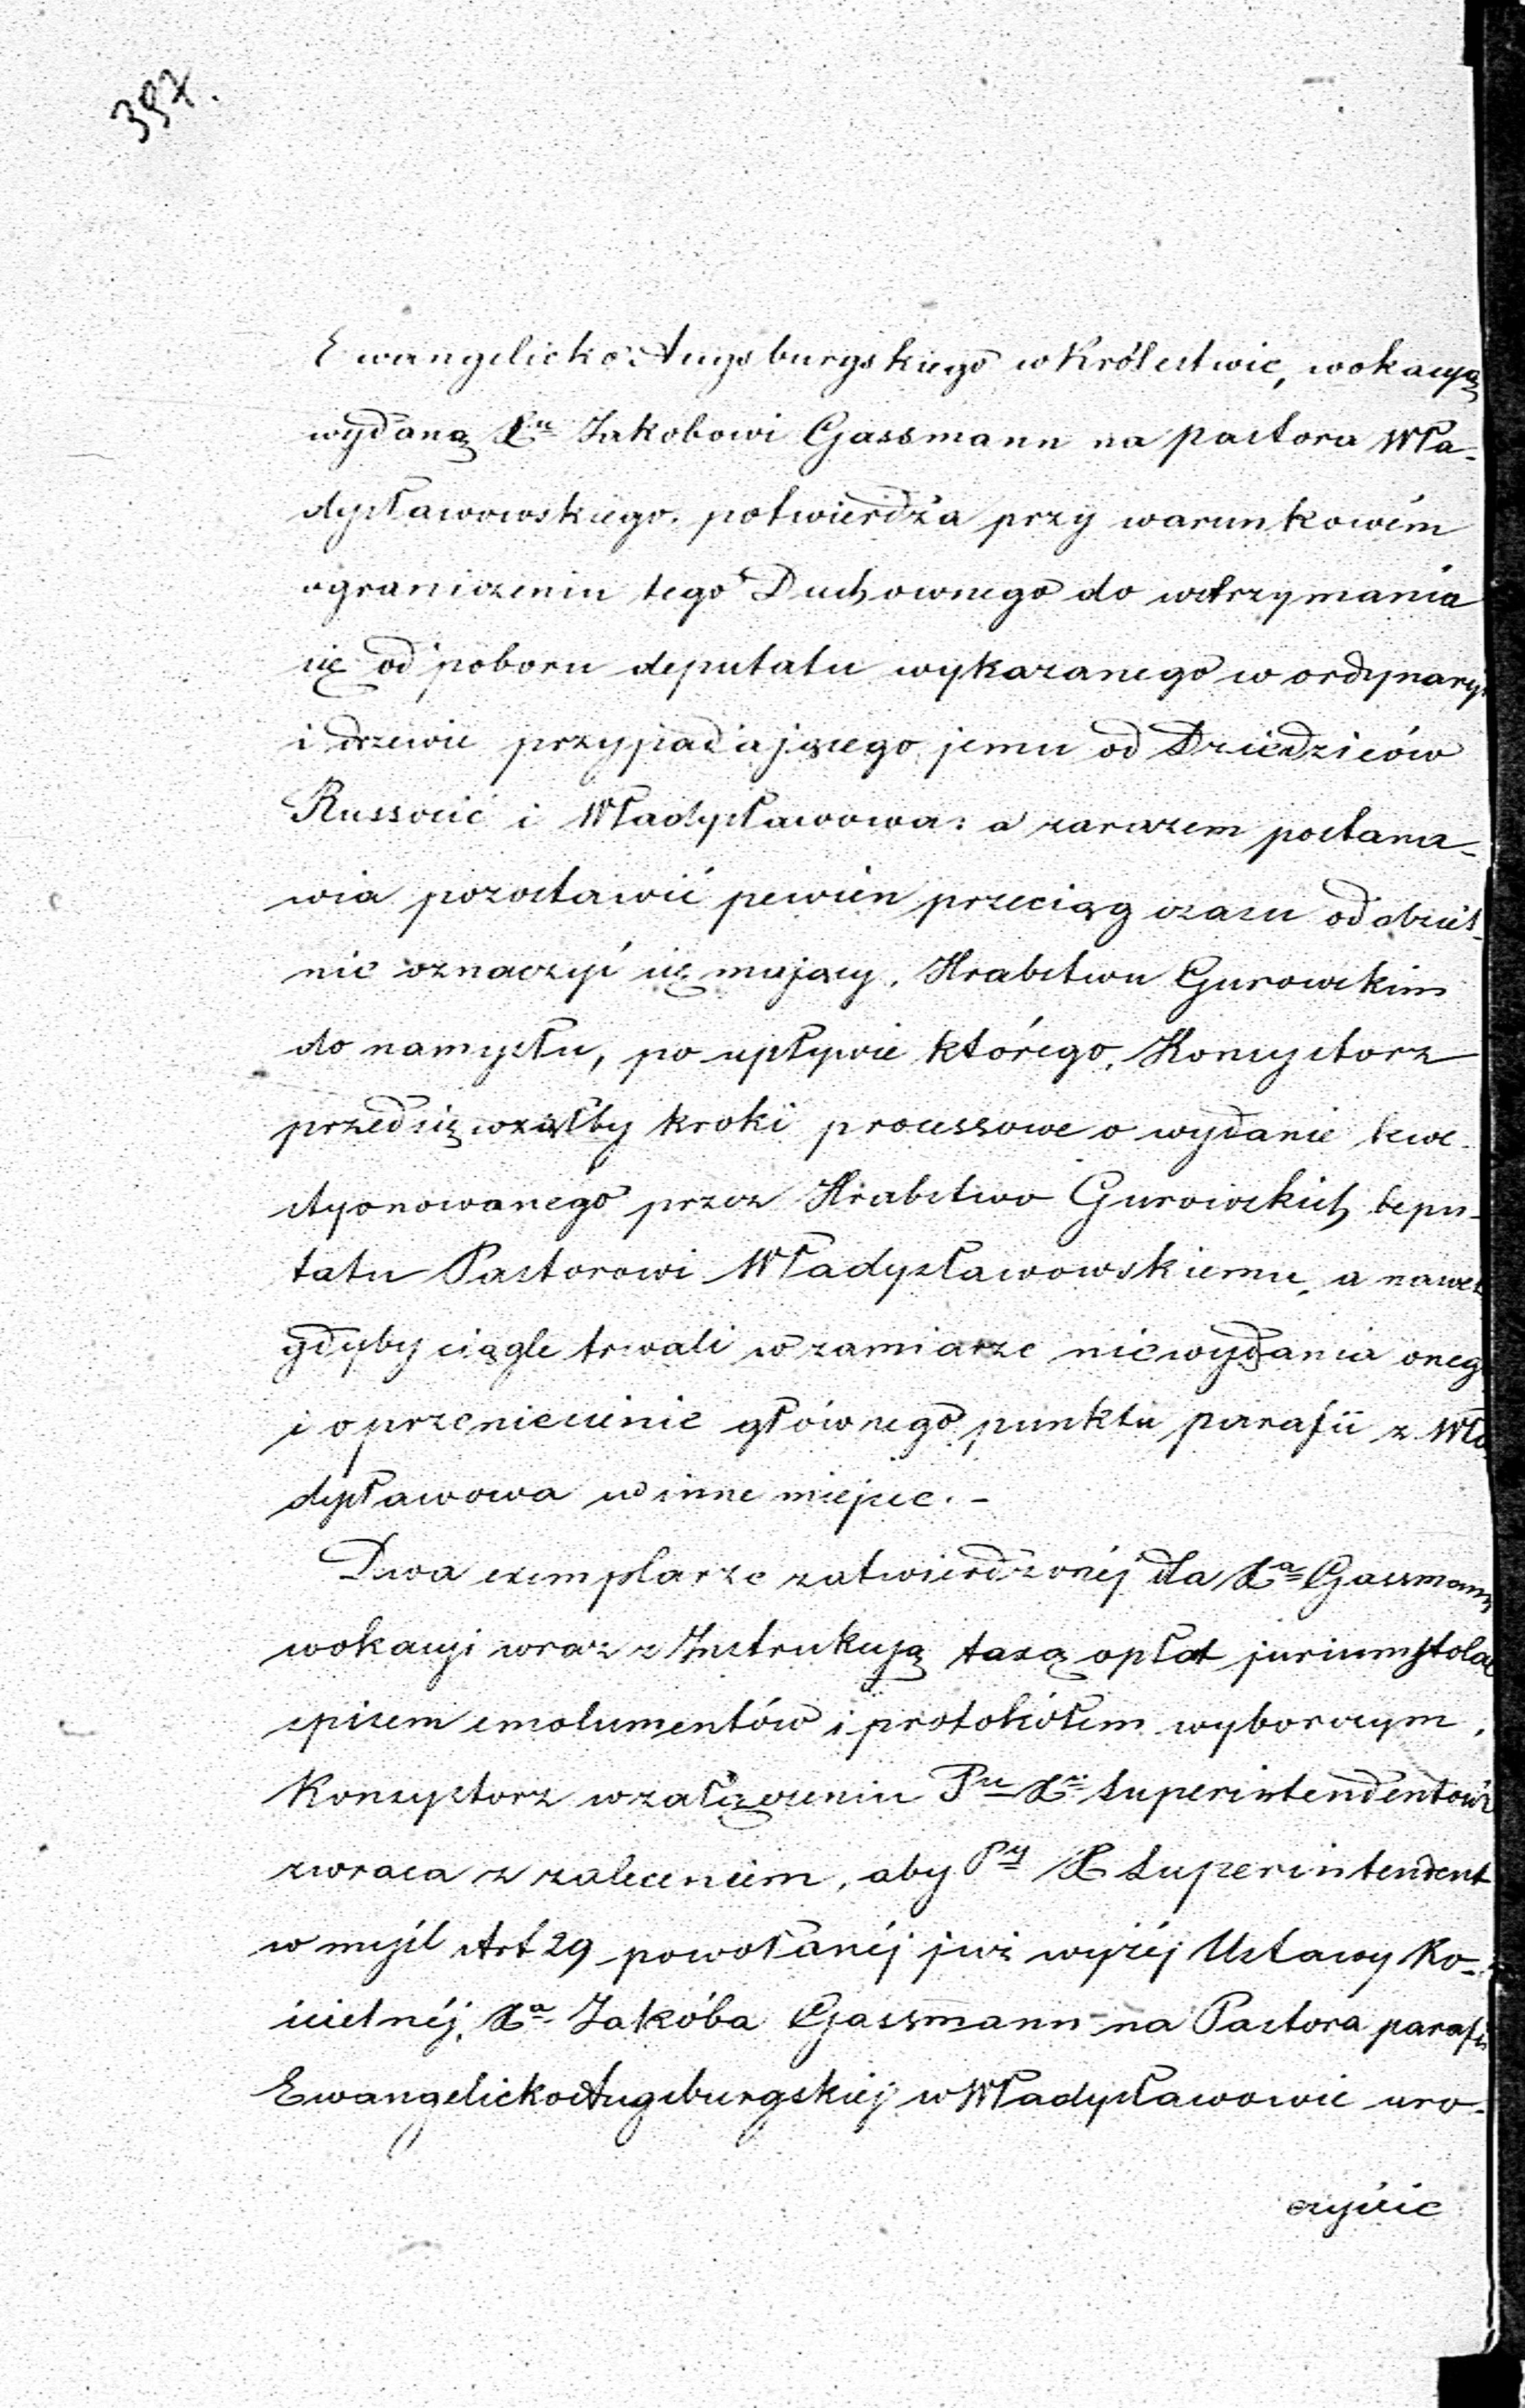 397.
Ewangelicko Augsburgskiego w Królestwie, wokacyą
wydaną Xu Jakobowi Gassmann na pastora Wła-
dysławowskiego, potwierdza przy warunkowém
ograniczeniu tego Duchownego do wstrzymania
się od poboru deputatu wykazanego w ordynaryi
i drzewie przypadającego jemu od Dziedziców
Russocic i Władysławowa: a zarazem postana-
wia pozostawić pewien przeciąg czasu
nie oznaczyć się mający, Hrabstwu Gurowskim
do namysłu, po upływie którego, Konsystorz
przedsięwziąłby kroki processowe o wydanie kwe-
styonowanego przez Hrabstwo Gurowskich depu-
tatu Pastorowi Władysławowskiemu, a nawet
gdyby ciągle trwali w zamiarze niewydania oneg
i o przeniesienie głównego punktu parafii z Wła
dysławowa w inne miejsce. -
Dwa exemplarze zatwierdzonéj dla Xa Gassmann
wokacyi wraz z Instrukcyą taxą opłat jurium stolae
spisem emolumentów i protokółem wyborczym,
Konsystorz w załączeniu Pu Xu Superintendentowi
zwraca z zaleceniem, aby Py X Superintendent
w myśl Art 29 powołanéj już wyżéj Ustawy Ko-
ścielnéj, Xa Jakóba Gassmann na Pastora parafii
Ewangelicko Augsburgskiéj w Władysławowie uro-
czyście